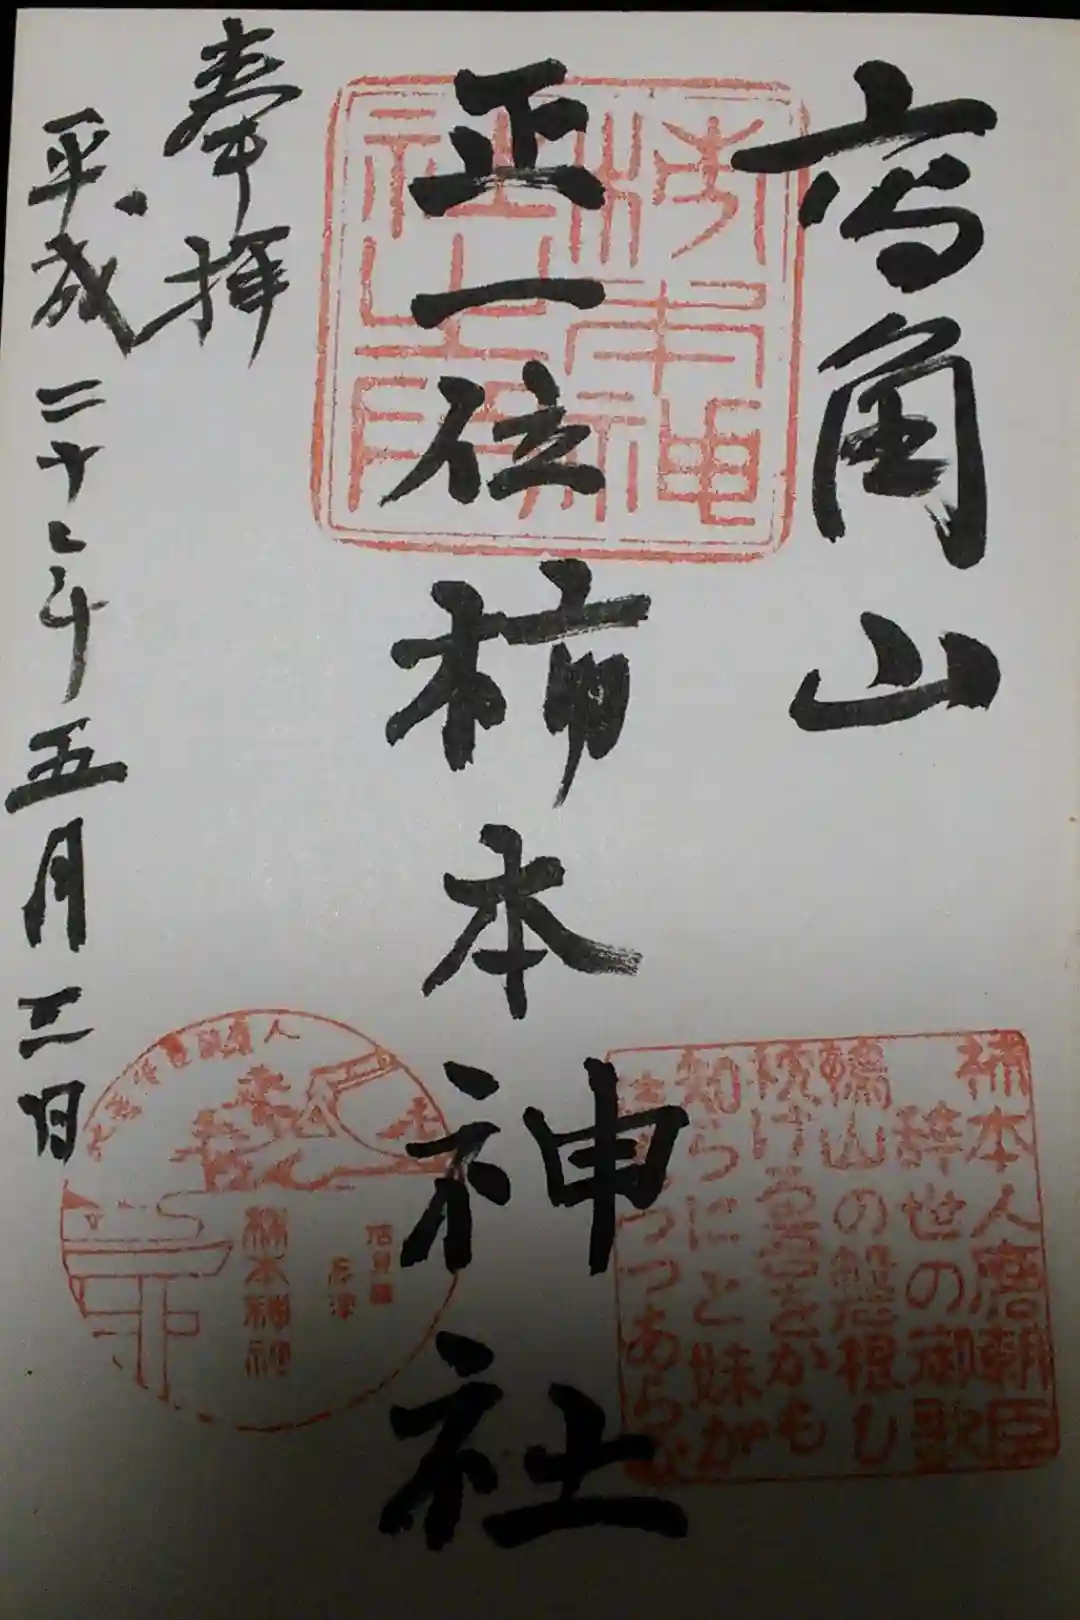 高角山
正一位柿本神社
奉拝
平成二十二年五月三日
柿本神
社之印
柿本人麿朝臣
辞世の御歌
鴨山の磐根し
枕ける吾をかも
知らにと妹が
待ちつつあらむ
柿本神社